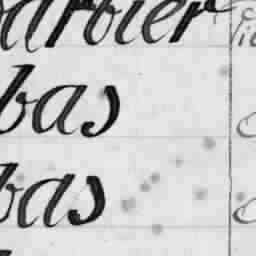 barbier
bas
bas